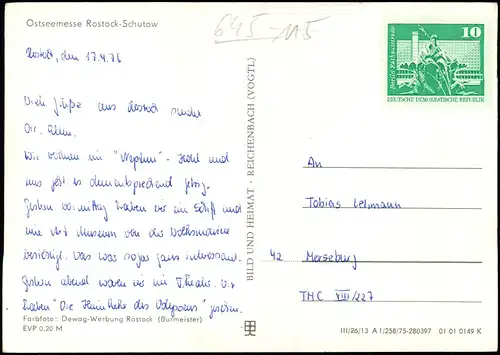 Ostseemesse Rostock-Schutow
645-115
Rostock, den 17.4.76
Viele Grüße aus Rostock sendet
Dir
Wir wohnen im "Neptun" - Hotel und
uns geht es dementsprechend
Gestern vormittag haben wir ein Schiff und
eine Art Museum von der Volksmarine
besichtigt. Das war sogar ganz interessant.
Gestern abend waren wir im Theater. Wir
haben "Die Heimkehr des Odysseus" gesehen.
Farbfoto: Dewag-Werbung Rostock (Burmeister)
EVP 0,20 M
BILD UND HEIMAT · REICHENBACH (VOGTL)
10
DEUTSCHE DEMOKRATISCHE REPUBLIK
An
Tobias Lehmann
42 Merseburg
THC VIII/227
III/26/13 A 1/258/75-280397 01 01 0149 K